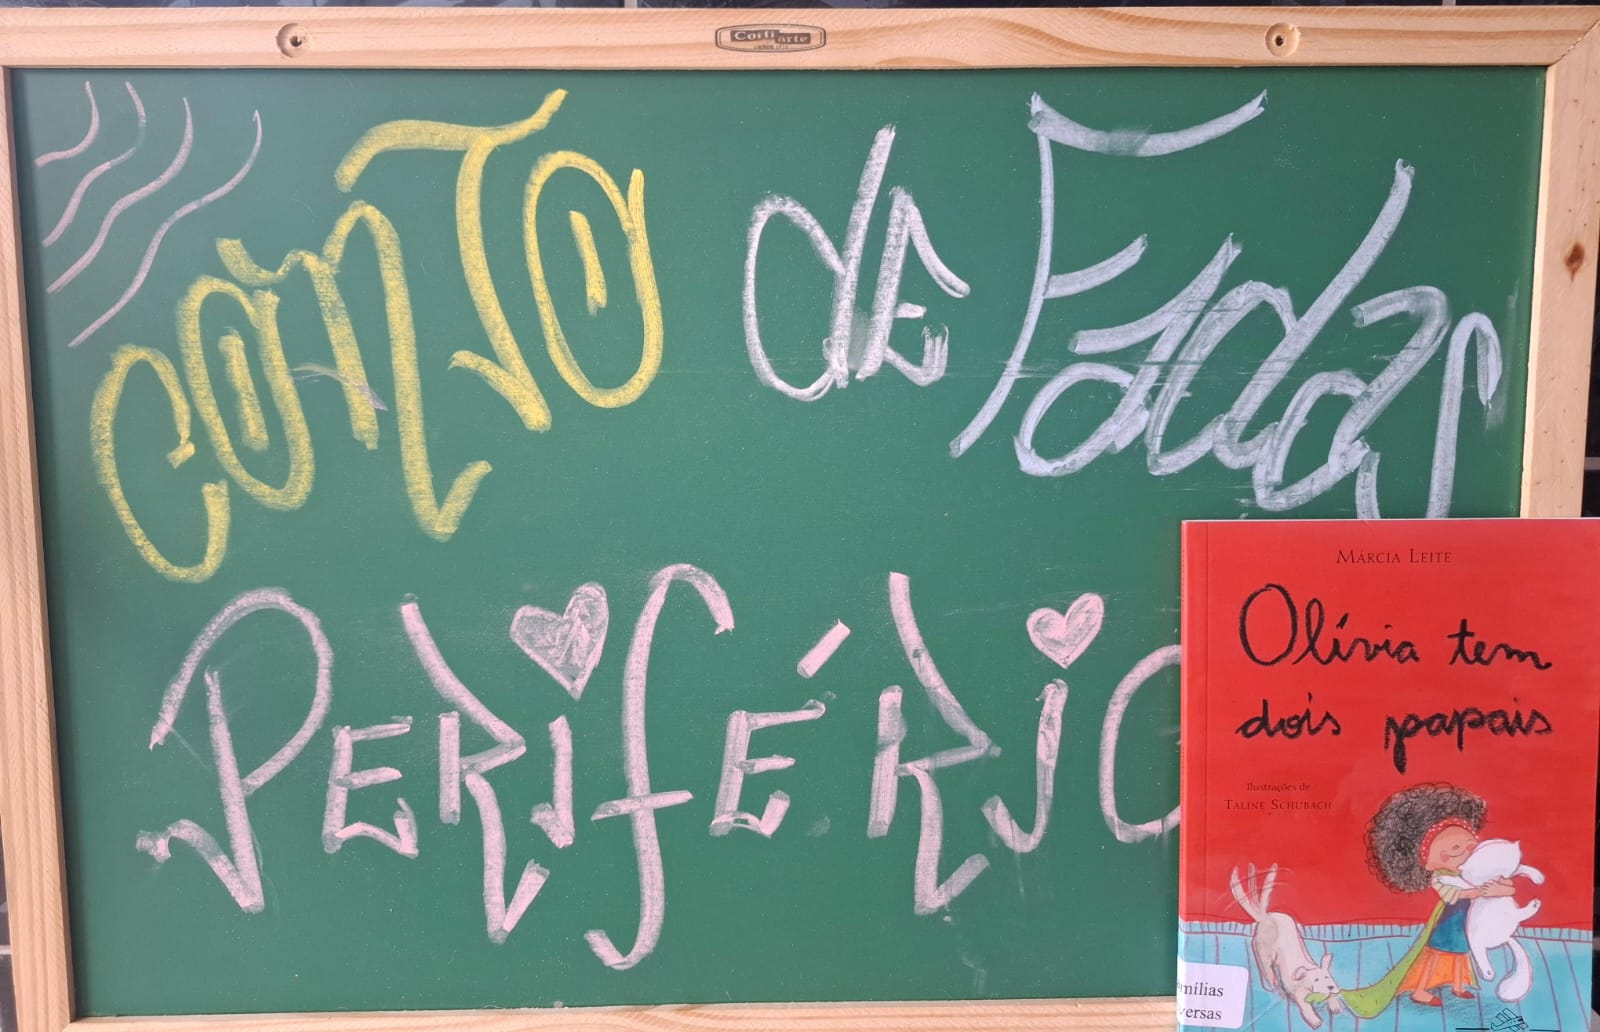 Corfiarte
CONTO de Fadas
PERIFÉRIO
MÁRCIA LEITE
Olívia tem
dois papais
Ilustrações de
TALINE SCHUBACH
mílias
versas